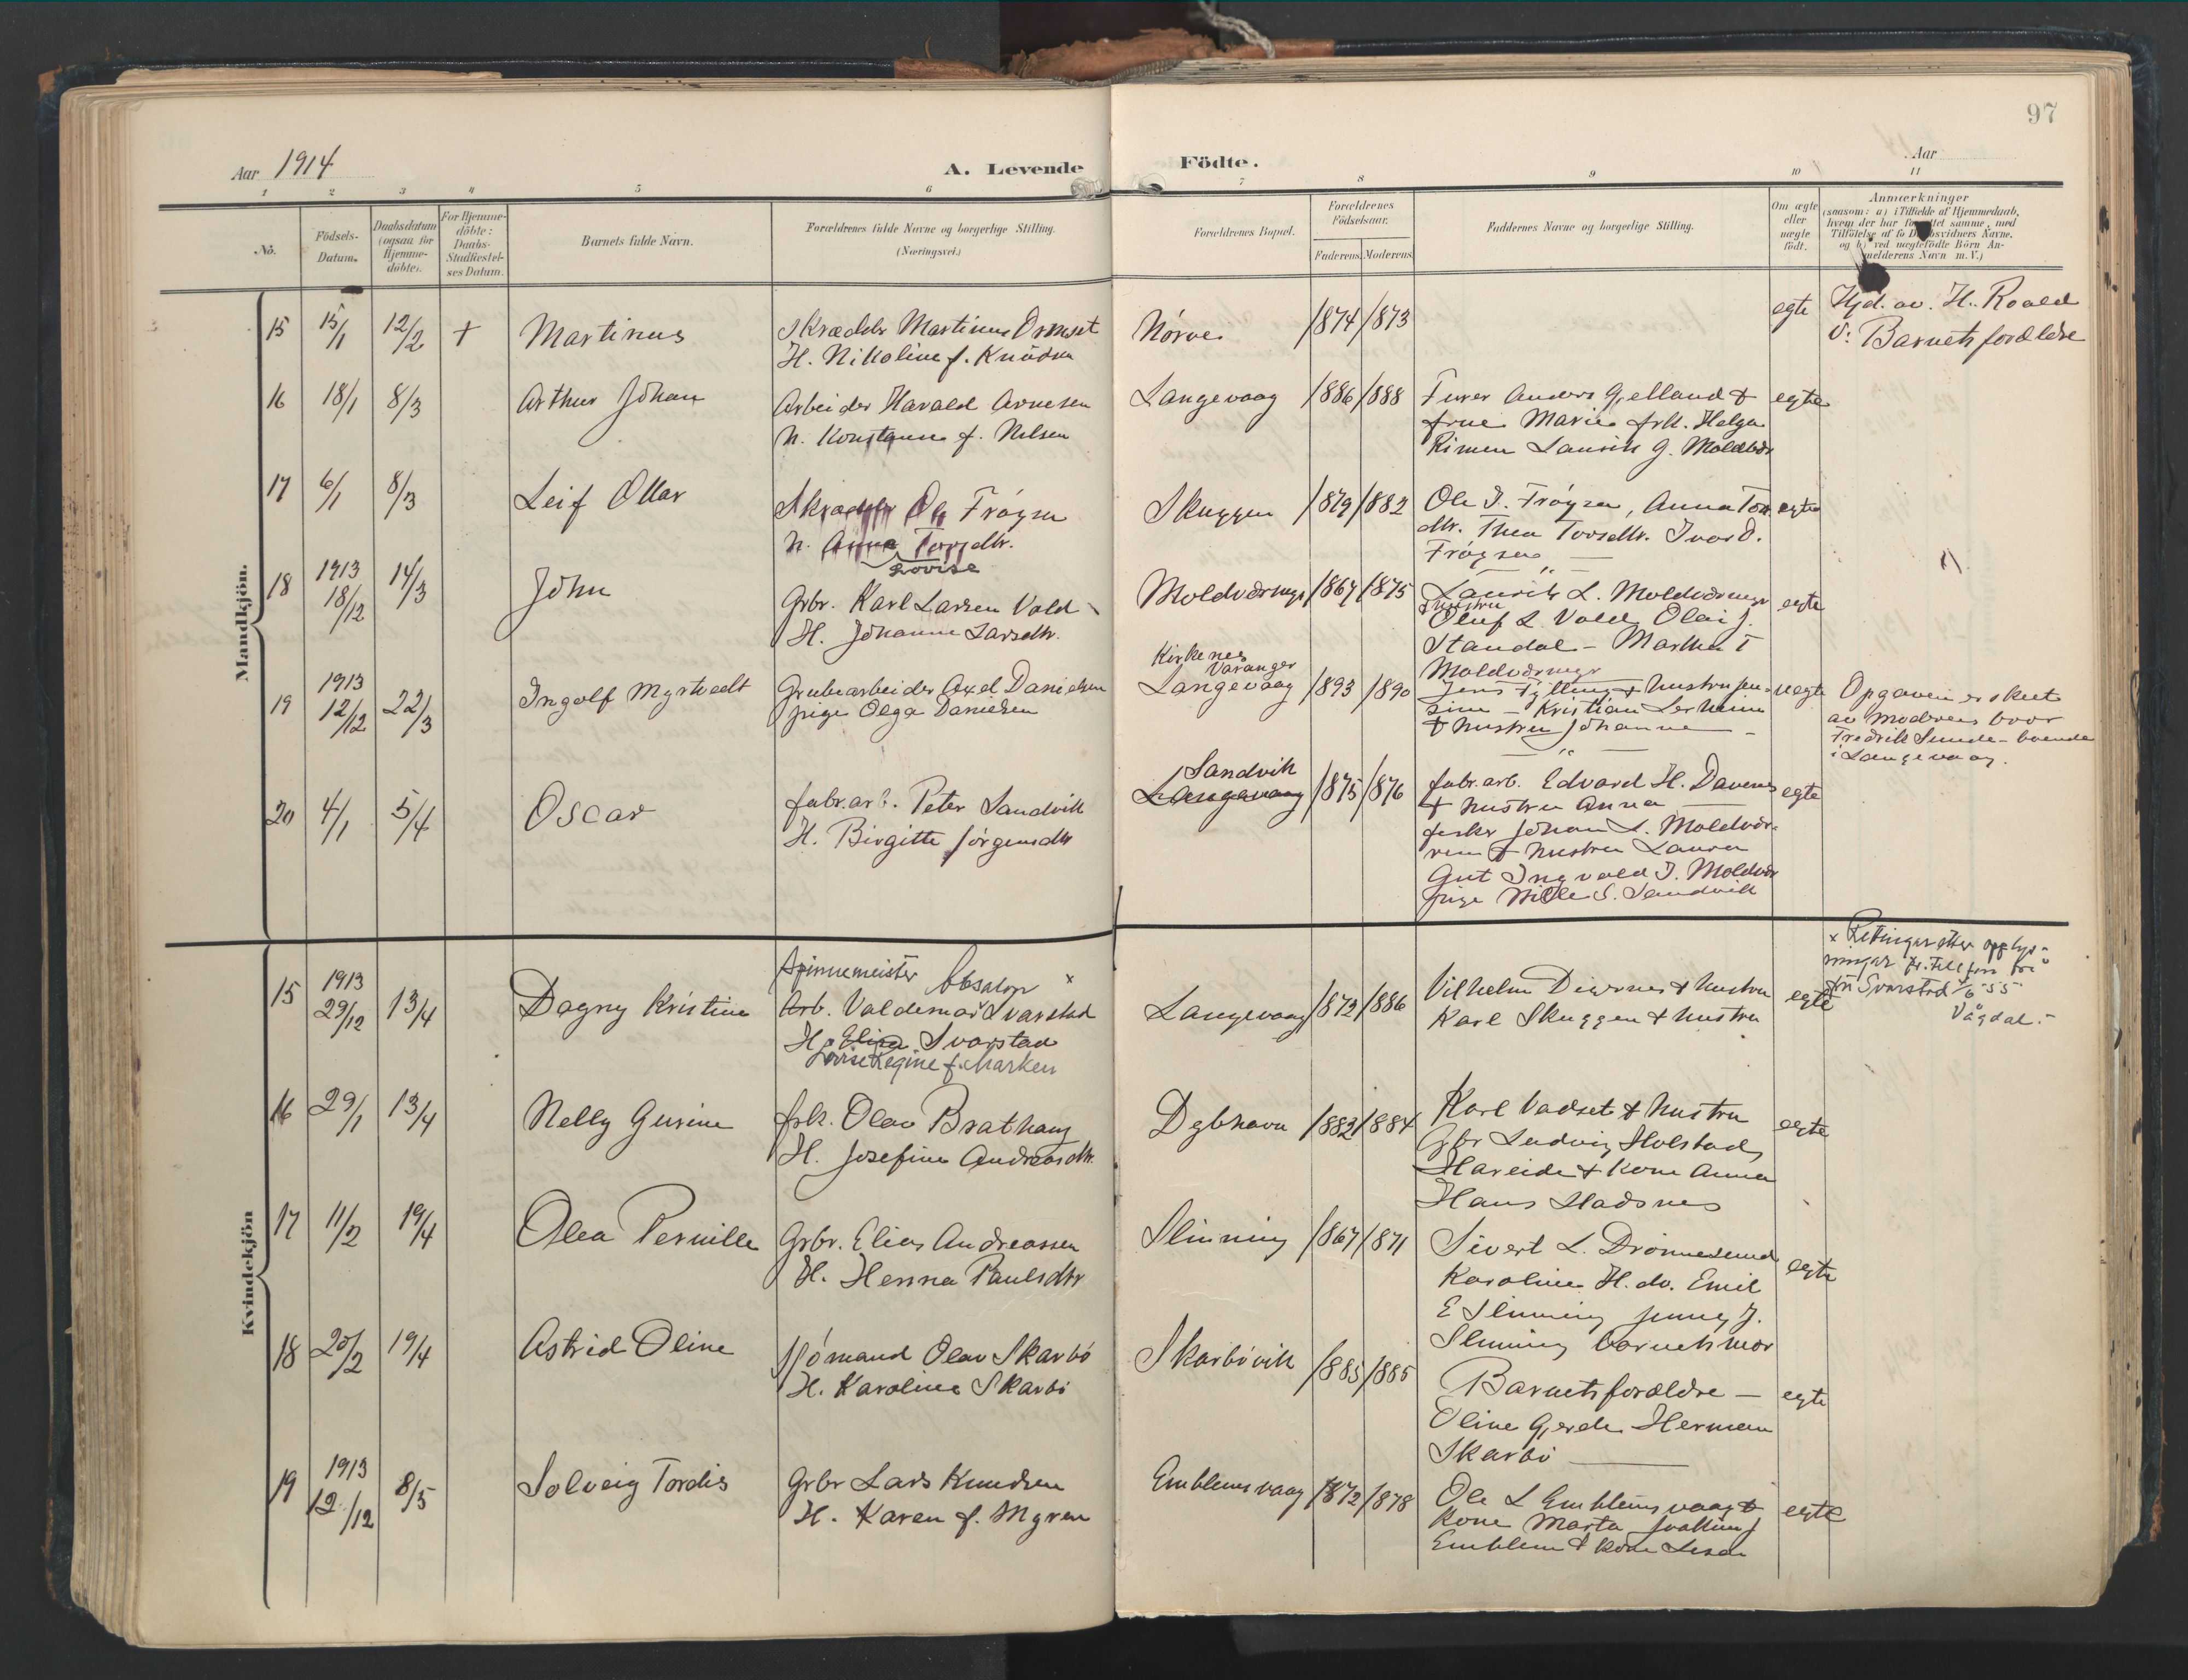 97
Aar 1914
A. Levende
Födte.
Aar
1 2 3 4 5 6 7 8 9 10 11
No.
Födsels-
Datum.
Daabsdatum
(ogsaa for
Hjemme-
döbte).
For Hjemme-
döbte:
Daabs-
Stadfæstel-
ses Datum.
Barnets fulde Navn.
Forældrenes fulde Navne og borgerlige Stilling.
(Næringsvei.)
Forældrenes Bopæl.
Forældrenes
Födselsaar.
Faderens. Moderens.
Faddernes Navne og borgerlige Stilling.
Om ægte
eller
uægte
födt.
Anmærkninger
(saasom: a) i Tilfælde af Hjemmedaab,
hvem der har forrettet samme, med
Tilföielse af to Daabsvidners Navne.
og b) ved uægtefödte Börn An-
melderens Navn m. V.)
Mandkjön.
15 15/1 12/2 + Martinus
Skrædder Martinus Ormset
H. Nikoline f. Knudsen
Nörve 1874 1873 egte
Hjd. av. H. Roald
V: Barnets forældre
16 18/1 8/3 Arthur Johan
Arbeider Harald Arnesen
h. Konstanse f. Nilsen
Langevaag 1886 1888
Furer Anders Gjelland &
frue Marie frk. Helga
Rimen Laurits G. Moldvær
egte
17 6/1 8/3 Leif Ottar
Skrædder Ole Fröysa
h. Anna Torsdtr.
Lovise
Skuggen 1879 1882
Ole I. Fröysa, Anna Tors
dtr. Thea Torsdtr. Ivar O.
Fröysa
egte
18 1913 18/12 14/3 John
Grbr. Karl Larsen Vold
H. Johanne Larsdtr.
Moldværsmyr 1867 1875
Laurits L. Moldværsmyr
hustru
Oluf L. Vold, Olai J.
Standal - Martha T
Moldværsmyr
egte
19 1913 12/12 22/3 Ingolf Myrtvedt
Grubearbeider Axel Danielsen
pige Olga Danielsen
Kirkenes
Varanger
Langevaag 1893 1890
Jens Fylling & hustru Jen-
sine - Kristian Lerheim
& hustru Johanne
uegte
Opgaven er skeet
av moderens bror
Fredrik Sunde - boende
i Langevaag.
20 4/1 5/4 Oscar
fabr.arb. Peter Sandvik
H. Birgitte Jörgensdtr
Sandvik
Langevaag 1875 1876
fabr.arb. Edvard H. Davenes
& hustru Anna
fisker Johan L. Moldvær-
& hustru Laura
Gut Ingvald J. Moldvær
pige Mille S. Sandvik
egte
Kvindekjön
15 1913 29/12 13/4 Dagny Kristine
Spinnemeister Absalon x
Arb. Valdemar Svarstad
H. Elina Svarstad
Lovise Regine f. Marken
Langevaag 1872 1886
Vilhelm Divernes & hustru
Karl Skuggen & hustru
egte
x Rettingar etter opplys-
ningar pr. telefon frå
fru Svarstad 1/6 55
Vågdal.-
16 29/1 13/4 Nelly Gurine
fsk. Olav Brathaug
H. Josefine Andreasdtr.
Dybhavn 1882 1884
Karl Vadset & hustru
Grbr Ludvig Holstad,
Hareide & kone Anna
Hans Hadsnes
egte
17 11/2 19/4 Olea Pernille
Grbr. Elias Andreassen
H. Henna Paulsdtr
Slinning 1867 1871
Sivert L. Drönnesund
Karoline H. do. Emil
E Slinning Jenny J.
Slinning barnets mor
egte
18 20/2 19/4 Astrid Oline
Sjömand Olav Skarbö
H. Karoline Skarbö
Skarbövik 1885 1885
Barnets forældre -
Oline Gjerde Herman
Skarbö
egte
19 1913 12/12 8/5 Solveig Tordis
Grbr Lars Knudsen
H. Karen f. Myren
Emblemsvaag 1872 1878
Ole L Emblemsvaag &
kone Marta Joakim J
Emblem & kone
egte